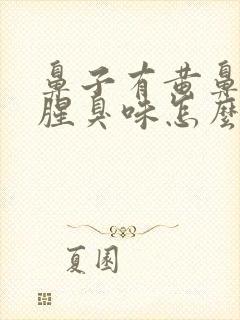 鼻子有黄鼻
腥臭味怎麼
夏園